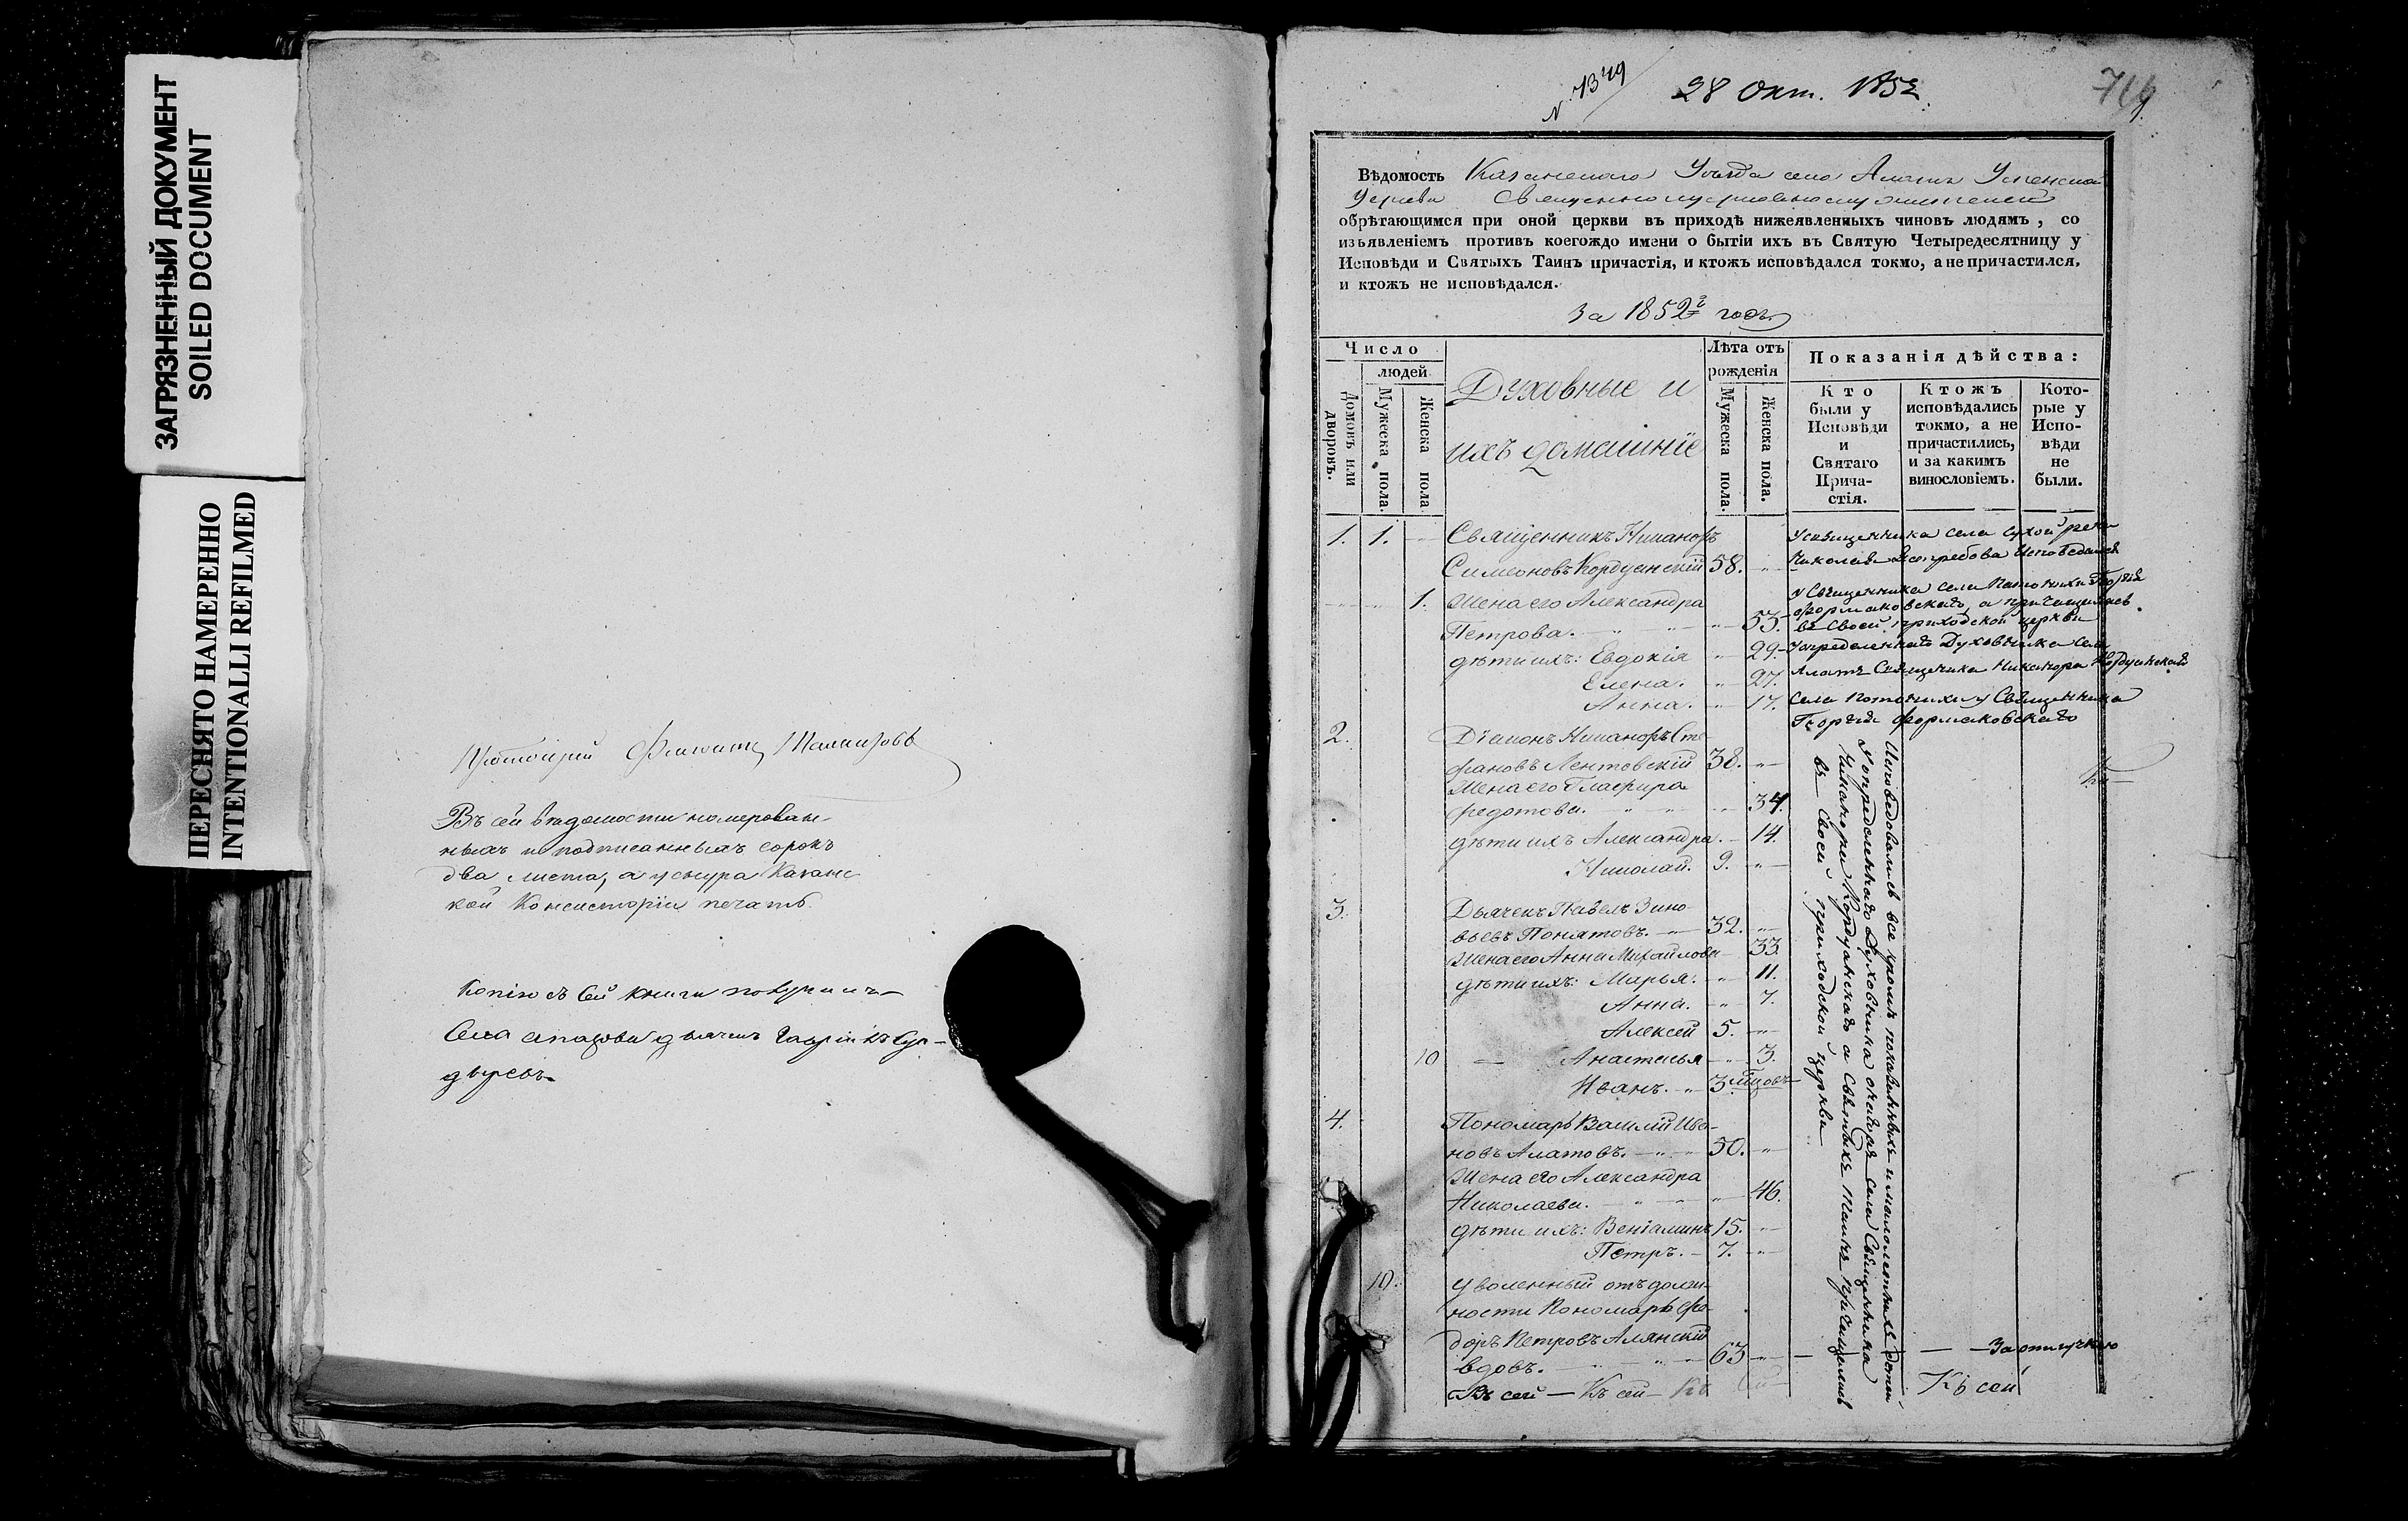 ЗАГРЯЗНЕННЫЙ ДОКУМЕНТ
SOILED DOCUMENT
ПЕРЕСНЯТО НАМЕРЕННО
INTENTIONALLI REFILMED
Протоіерей
Въ сей вѣдомости номерован-
ныхъ и подписанныхъ сорокъ
два листа, а у снура Казанс
кой Консисторіи печать.
Копію съ сей книги получилъ
Села дьячекъ
N. 1349
28 Окт. 1852.
Вѣдомость Казанскаго Уѣзда села Алатъ Успенской
Церкви Священноцерковнослужителей
обрѣтающимся при оной церкви въ приходѣ нижеявленныхъ чиновъ людямъ, со
изъявленіемъ противъ коегождо имени о бытіи ихъ въ Святую Четыредесятницу у
Исповѣди и Святыхъ Таинъ причастія, и ктожъ исповѣдался токмо, а не причастился,
и ктожъ не исповѣдался.
За 1852й годъ
Число
людей
Домовъ или дворовъ.
Мужеска пола.
Женска пола
Духовные и
ихъ домашніе
Лѣта отъ
рожденія
Мужеска пола.
Женска пола.
Показанія дѣйства:
Кто
были у
Исповѣди
и
Святаго
Прича-
стія.
Ктожъ
исповѣдались
токмо, а не
причастились,
и за какимъ
винословіемъ.
Кото-
рые у
Испо-
вѣди
не
были.
1. 1. Священникъ Никаноръ У священника села Сухой реки
Симеоновъ Кордуанскій 58. Николая Ястребова Исповедался
1. Жена его Александра у Священника села Георгія
Формаковскаго, а причащались
Петрова. 55. въ своей приходской церкви
дѣти ихъ: Евдокія 29. У определеннаго Духовника села
Елена. 27. Алатъ Священика Никанора Кордуанскаго
Анна. 17. Села у Священника
Георгія Формаковскаго
2. Діаконъ Никаноръ Сте-
фановъ Лентовскій 38.
Жена его Глафира
Федотова. 34.
дѣти ихъ Александра. 14.
Николай. 9.
3. Дьячекъ Павелъ Зино-
вьевъ Понятовъ. 32.
Жена его Анна Михайлова 33
дѣти ихъ: Марья. 11.
Анна. 7.
Алексей 5.
10 Анастасья 3.
Иванъ. 3 мцовъ
4. Пономарь Василій Ива-
новъ Алатовъ. 50.
Жена его Александра
Николаева. 46.
дѣти ихъ: Веніаминъ 15.
Петръ. 7.
10. Уволенный отъ долж-
ности Пономарь Фе-
доръ Петровъ Алянскій
вдовъ. 63 За отлучкою
Къ сей — Къ сей — Къ сей Къ сей
Исповедовались все кромѣ показанныхъ и малолетныхъ детей
у определеннаго Духовника онаго села Священника
Никанора Кордуанскаго а Святыхъ Таинъ причащались
въ своей приходской церкви